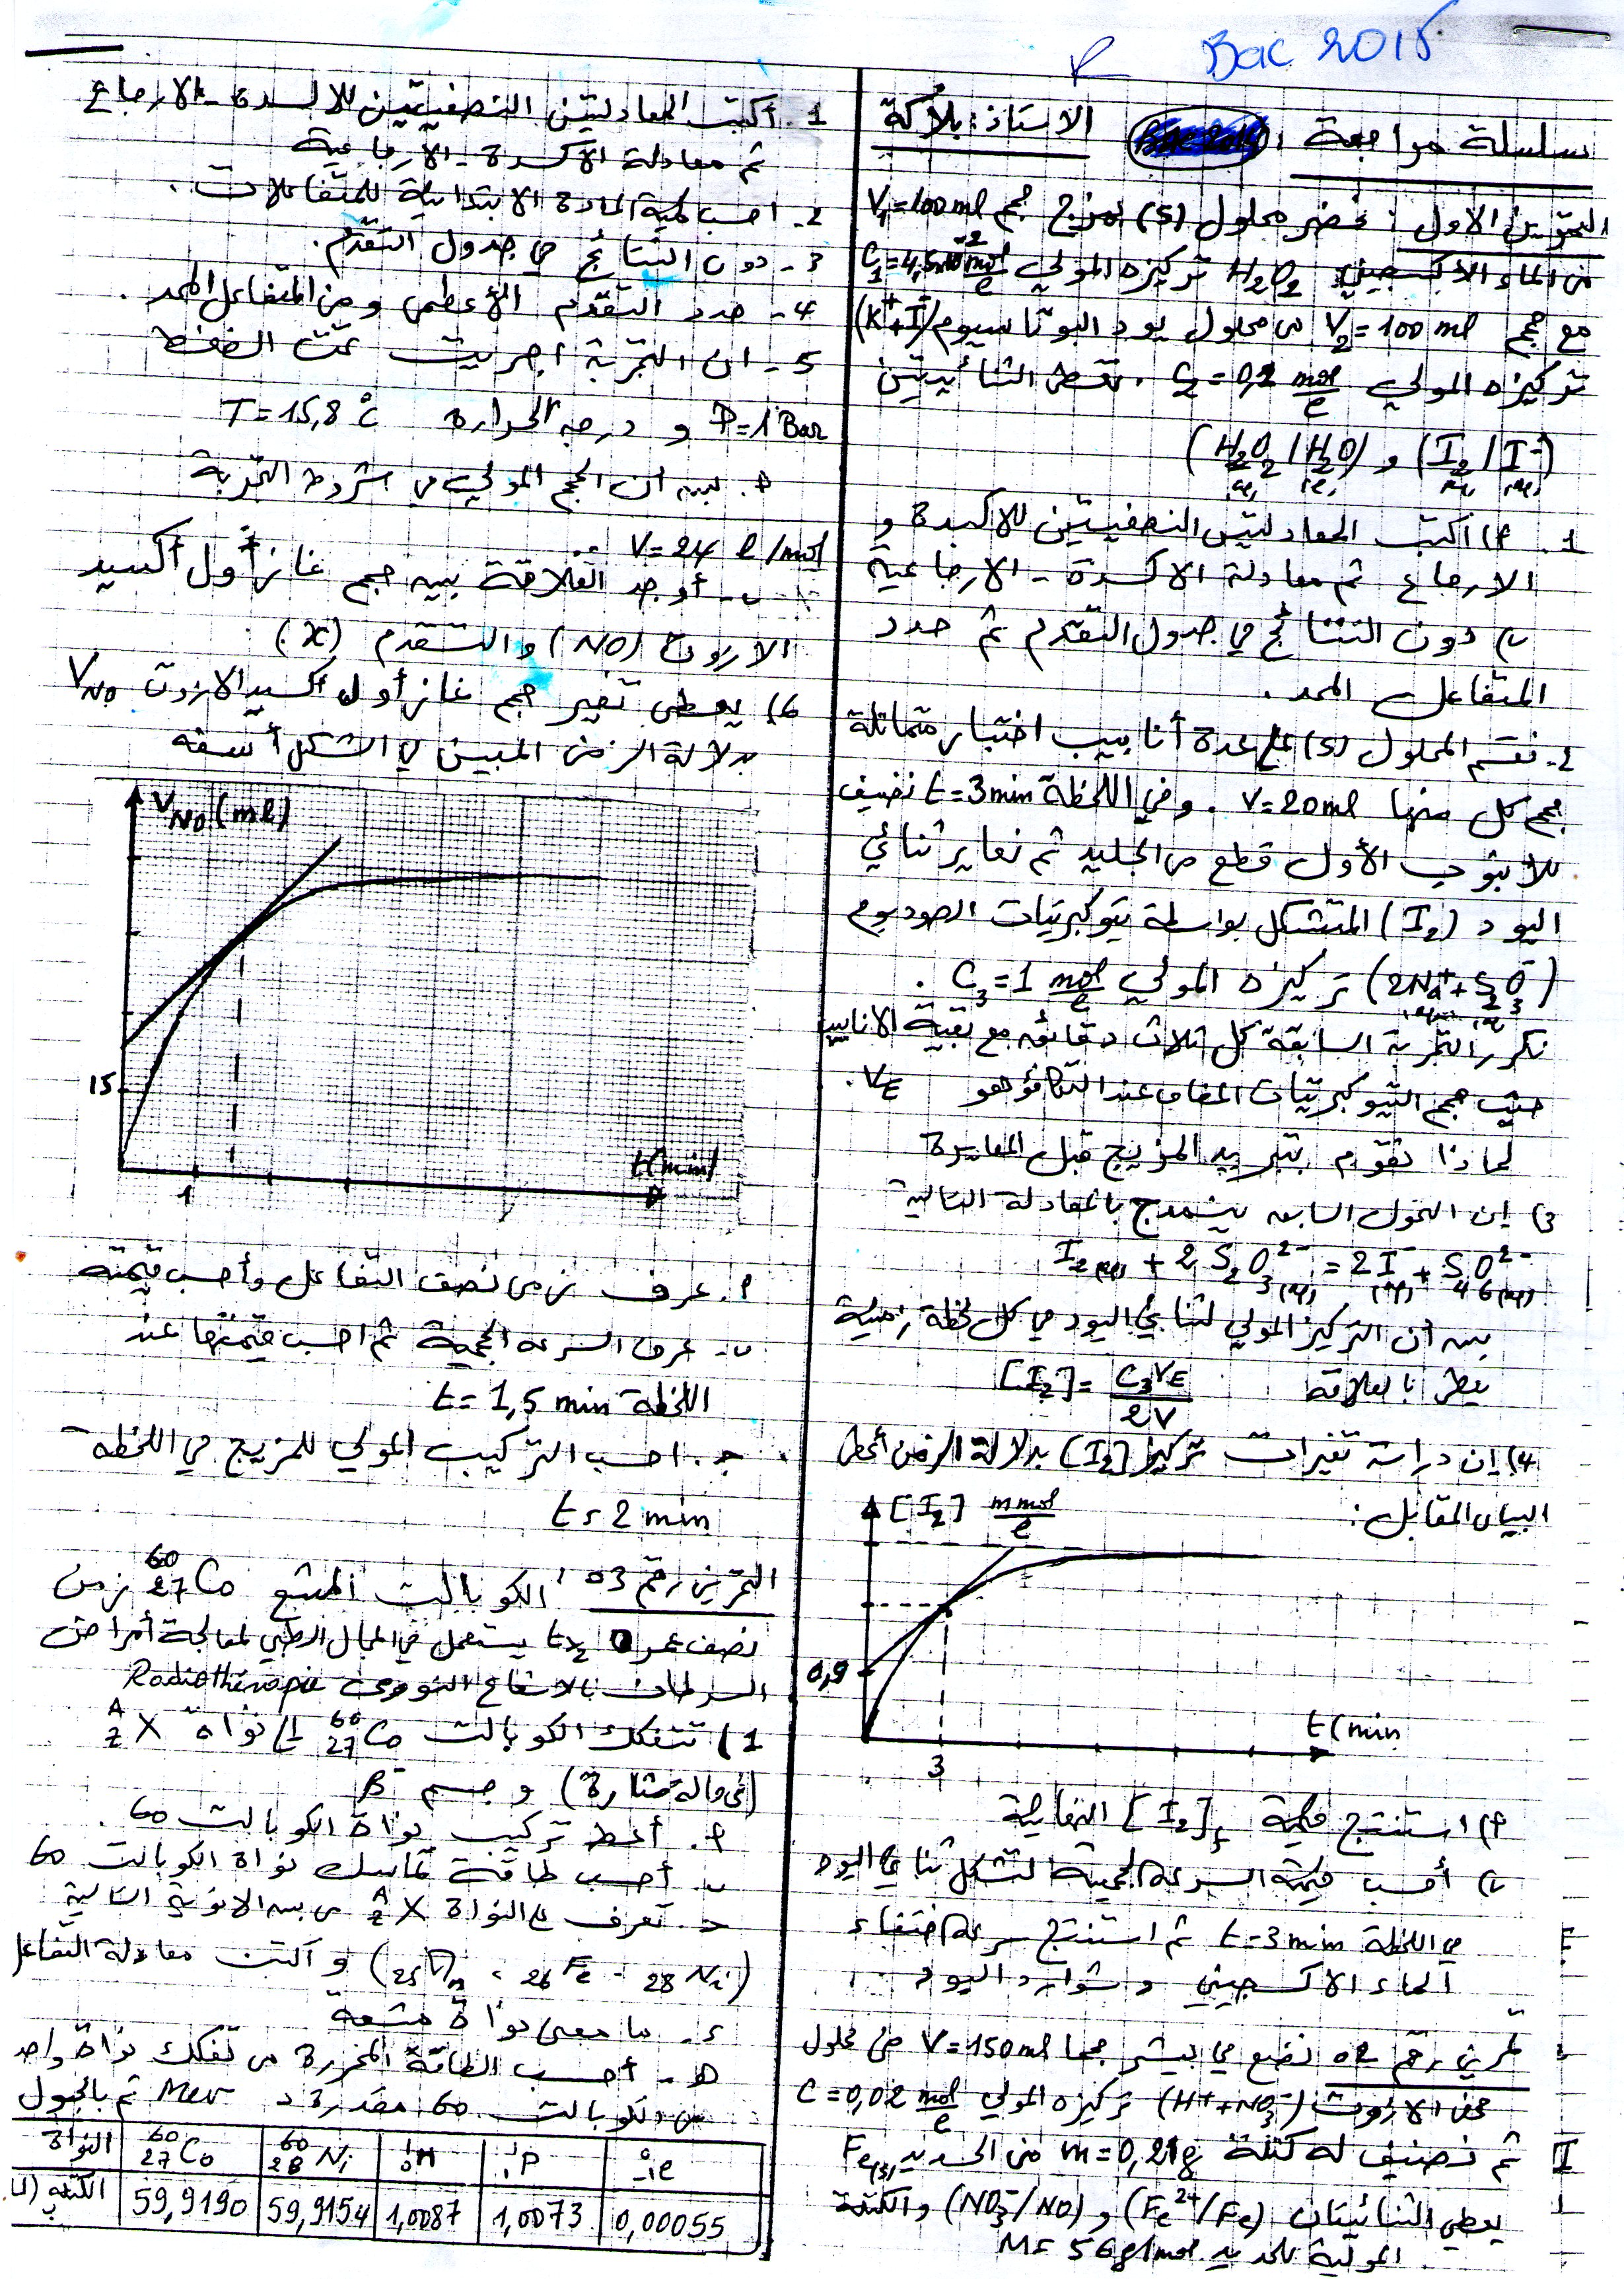 Bac 2015
سلسلة مراجعة : الاستاذ: بلاكة
التمرين الاول : نحضر محلول (S) بمزج حجم V₁=100 ml
من الماء الأكسجيني H₂O₂ تركيزه المولي C₁=4,5.10⁻² mol/l
مع حجم V₂=100 ml من محلول يود البوتاسيوم (K⁺+I⁻)
تركيزه المولي C₂=0,2 mol/l . تعطى الثنائيتين
(I₂(aq)/I⁻(aq)) و (H₂O₂(aq)/H₂O(l))
1. أ) اكتب المعادلتين النصفيتين للاكسدة و
الارجاع ثم معادلة الاكسدة - الارجاعية
ب) دون النتائج في جدول التقدم ثم حدد
المتفاعل المحد .
2. نقسم المحلول (S) على عدة أنابيب اختبار متماثلة
حجم كل منها V=20ml . وفي اللحظة t=3min نضيف
للأنبوب الأول قطع من الجليد ثم نعاير ثنائي
اليود (I₂) المتشكل بواسطة تيوكبريتات الصوديوم
(2Na⁺(aq)+S₂O₃⁻(aq)) تركيزه المولي C₃=1 mol/l .
نكرر التجربة السابقة كل ثلاث دقائق مع بقية الأنابيب
حيث حجم التيوكبريتات المضاف عند التكافؤ هو V_E .
لماذا نقوم بتبريد المزيج قبل المعايرة
3) إن التحول السابق ينمدج بالمعادلة التالية
I₂(aq) + 2S₂O₃²⁻(aq) = 2I⁻(aq) + S₄O₆²⁻(aq)
بين أن التركيز المولي لثنائي اليود في كل لحظة زمنية
يعطى بالعلاقة [I₂] = C₃V_E/2V
4) إن دراسة تغيرات تركيز [I₂] بدلالة الزمن أعطى
البيان المقابل :
[I₂] mmol/l
0,9
3
t(min
أ) استنتج قيمة [I₂]f النهائية
ب) أحسب قيمة السرعة الحجمية لتشكل ثنائي اليود
في اللحظة t=3min ثم استنتج سرعة اختفاء
الماء الاكسجيني و شوارد اليود
تمرين رقم 02 نضع في بيشر حجما V=150ml من محلول
حمض الازوت (H⁺+NO₃⁻) تركيزه المولي C=0,02 mol/l
ثم نضيف له كتلة m=0,21g من الحديد Fe(s)
يعطى الثنائيتان (Fe²⁺/Fe) و (NO₃⁻/NO) والكتلة
المولية للحديد M=56g/mol
1. أكتب المعادلتين النصفيتين للاكسدة - الارجاع
ثم معادلة الأكسدة - الارجاعية
2. احسب كمية المادة الابتدائية للمتفاعلات .
3 - دون النتائج في جدول التقدم .
4 - حدد التقدم الأعظمي ومن المتفاعل المحد .
5 - ان التجربة اجريت تحت الضغط
P=1 Bar و درجة الحرارة T=15,8 °C
أ. بين ان الحجم المولي في شروط التجربة
V=24 l/mol
ب - أوجد العلاقة بين حجم غاز أول أكسيد
الازوت (NO) والتقدم (x) .
6) يعطى تغير حجم غاز أول أكسيد الازوت V_NO
بدلالة الزمن المبين في الشكل أسفله
V_NO (ml)
15
1
t(min)
أ. عرف زمن نصف التفاعل وأحسب قيمته
ب - عرف السرعة الحجمية ثم احسب قيمتها عند
اللحظة t=1,5 min
ج . احسب التركيب المولي للمزيج في اللحظة
t=2 min
التمرين رقم 03 : الكوبالت المشع ⁶⁰₂₇Co زمن
نصف عمره t½ يستعمل في المجال الطبي لمعالجة أمراض
السرطان بالاشعاع النووي Radiothérapie
1) تتفكك الكوبالت ⁶⁰₂₇Co الى نواة ᴬ_ZX
(في حالة مثارة) و جسيم β⁻
أ. أعط تركيب نواة الكوبالت 60 .
ب أحسب طاقة تماسك نواة الكوبالت 60
ج. تعرف على النواة ᴬ_ZX من بين الانوية التالية
(₂₅Mn , ₂₆Fe - ₂₈Ni) و اكتب معادلة التفاعل
د. ما معنى نواة مشعة
ه - أحسب الطاقة المحررة من تفكك نواة واحد
من الكوبالت 60 مقدرة د Mev ثم بالجول
النواة ⁶⁰₂₇Co ⁶⁰₂₈Ni ¹₀n ¹₁P ⁰₋₁e
الكتلة (u) 59,9190 59,9154 1,0087 1,0073 0,00055